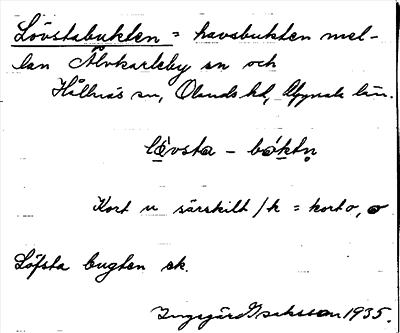 Lövstabukten = havsbukten mel-
lan Älvkarleby sn och
Hållnäs sn, Olands hd, Uppsala län.
lövsta - bòktn
Kort u särskilt / k = kort o, o
Löfsta bugten ek.
Ingegärd Isaksson 1935.